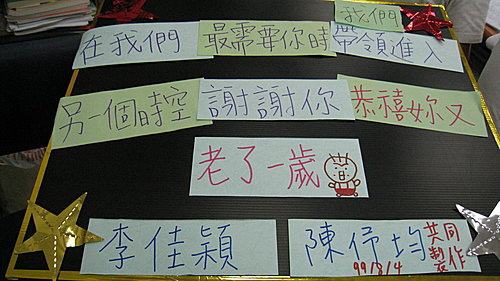 我們
在我們 最需要你時 帶領進入
另一個時空 謝謝你 恭禧妳又
老了一歲
李佳穎 陳伃均 共同製作
99/8/4